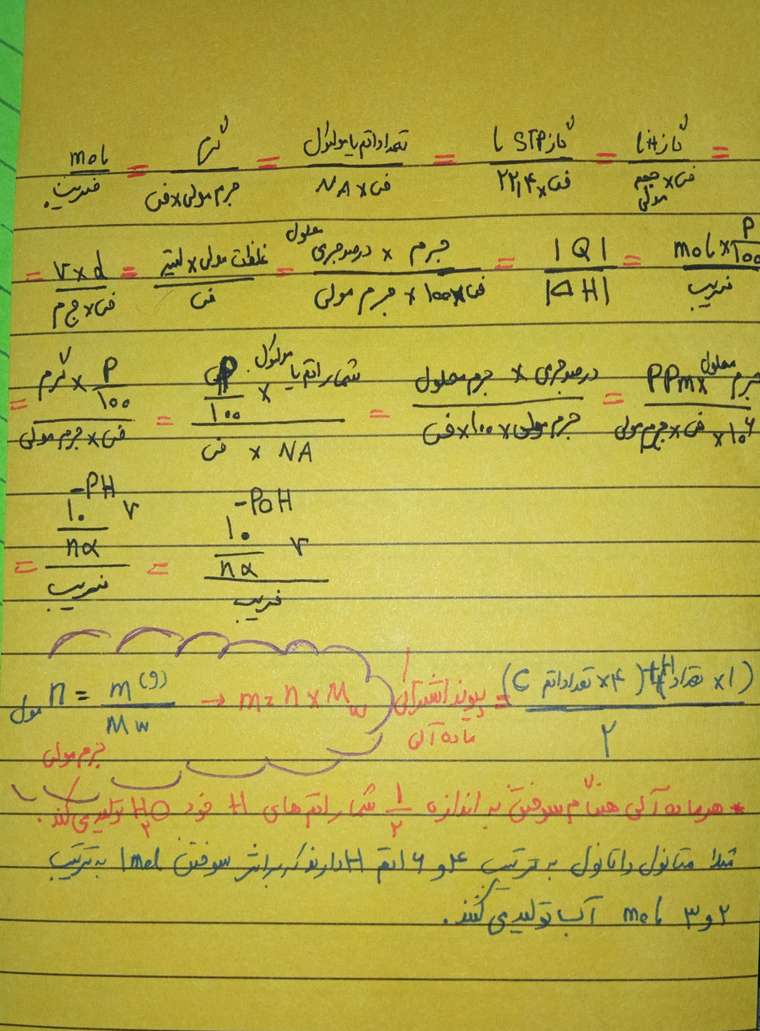 mol / ضریب = گرم / جرم مولی × ض = تعداد اتم یا مولکول / NA × ض = گاز STP L / ۲۲٫۴ × ض = گاز L / حجم مولی × ض =
= V × d / ض × جرم = غلظت مولی × لیتر / ض = جرم محلول × درصد جرمی / ض × ۱۰۰ × جرم مولی = |Q| / |ΔH| = mol × P/100 / ضریب
= گرم × P/100 / ض × جرم مولی = شمار اتم یا مولکول × P/100 / ض × NA = درصد جرمی × جرم محلول / جرم مولی × ۱۰۰ × ض = PPm × جرم محلول / ۱۰^۶ × ض × جرم مولی
= 10^-PH / nα V / ضریب = 10^-POH / nα V / ضریب
مول n = m(g) / Mw → m = n × Mw
جرم مولی
پیوند اشتراکی ماده آلی = (C تعداد اتم × ۴) + (H تعداد × ۱) / ۲
* هر ماده آلی هنگام سوختن به اندازه ۱/۲ شمار اتم های H خود H₂O تولید می کند.
مثلا متانول و اتانول به ترتیب ۴ و ۶ اتم H دارند که بر اثر سوختن 1mol به ترتیب
۲ و ۳ mol آب تولید می کنند.